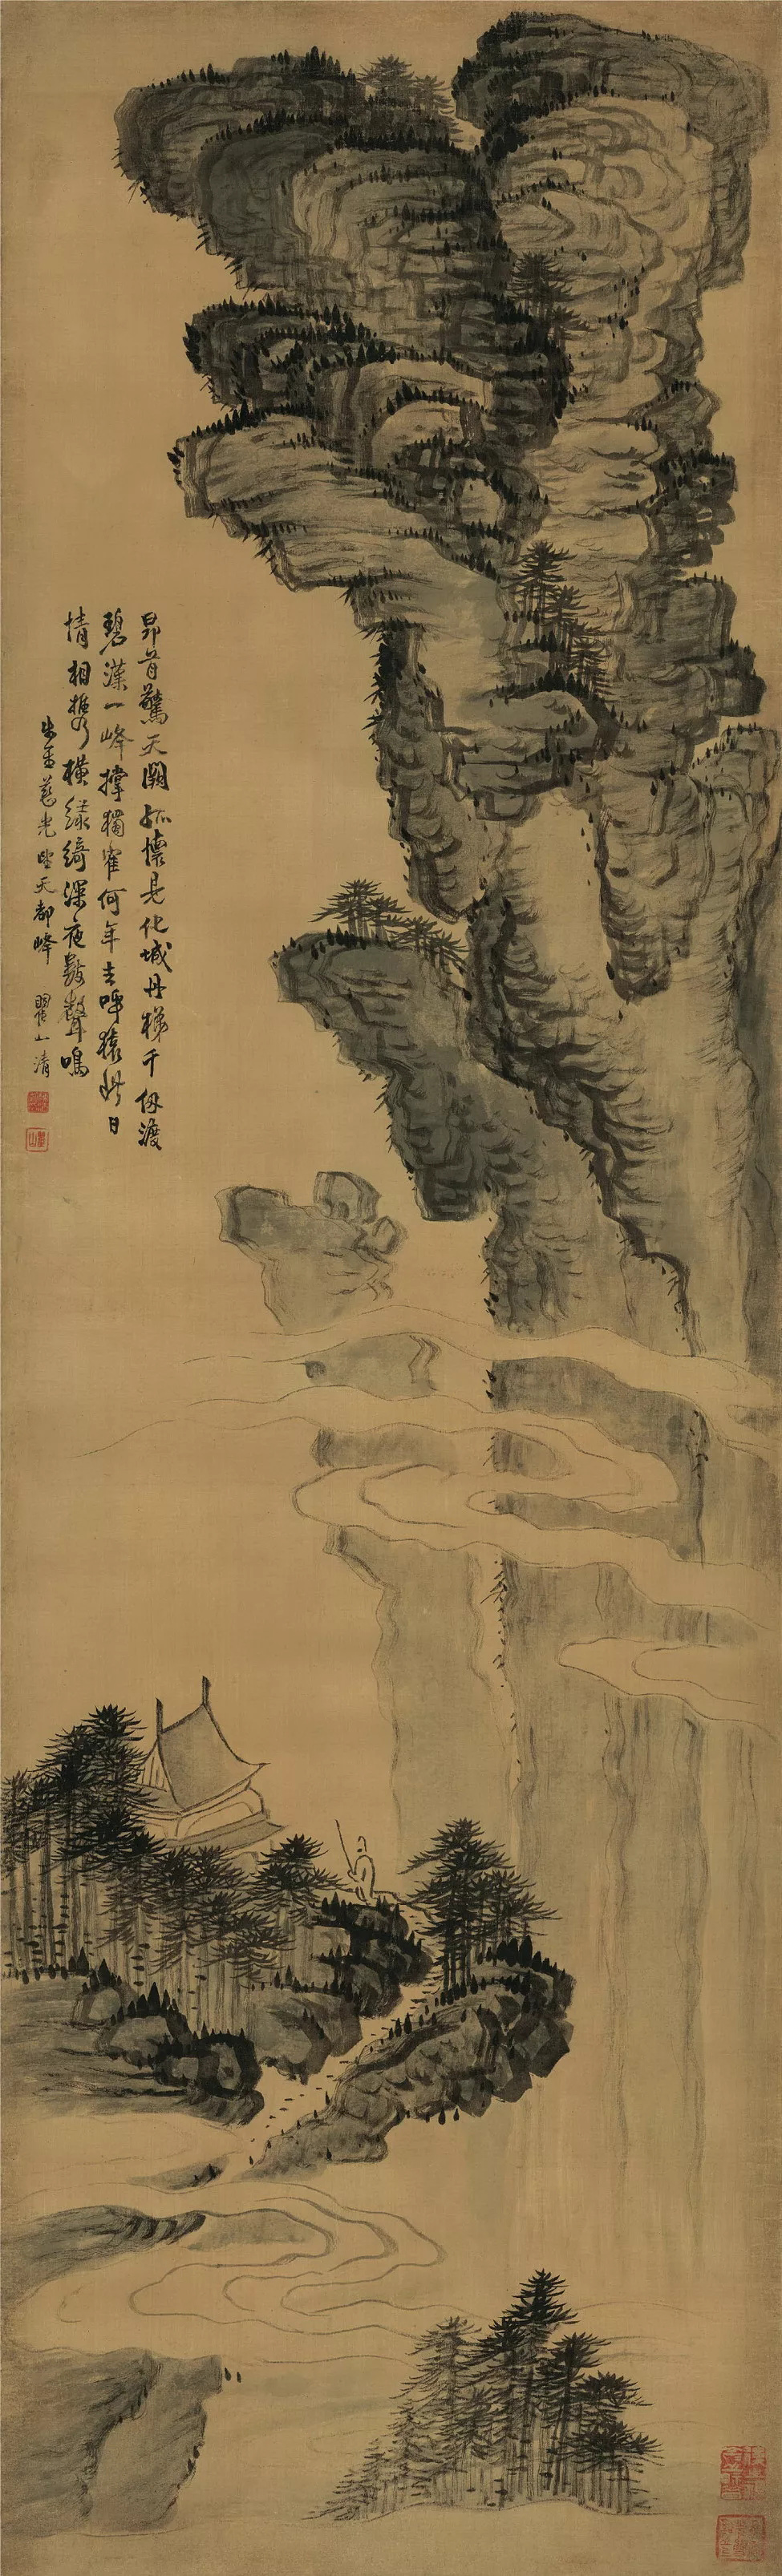 昂首驚天闕孤懷是化城丹梯千仞渡
碧漢一峰撐獨寉何年去呼猿此日
情相攜橫綠綺深夜數聲鳴
慈光望天都峰 瞿山清